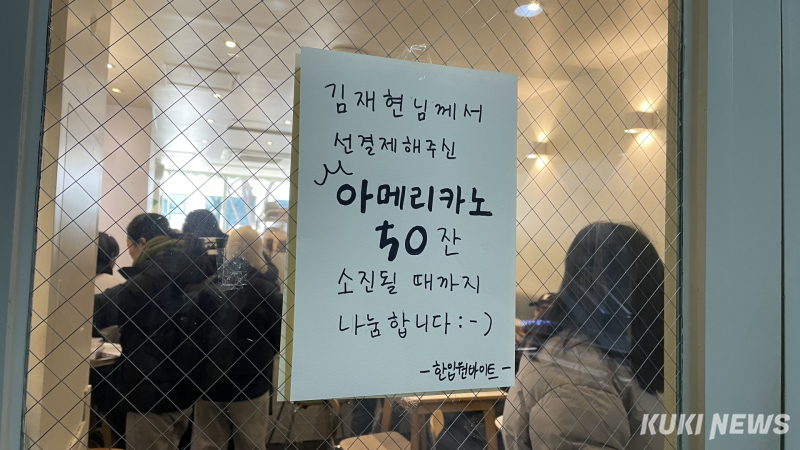 김재현님께서
선결제해주신
아메리카노
50잔
소진될 때까지
나눔합니다 :-)
-한입원바이트-
KUKI NEWS